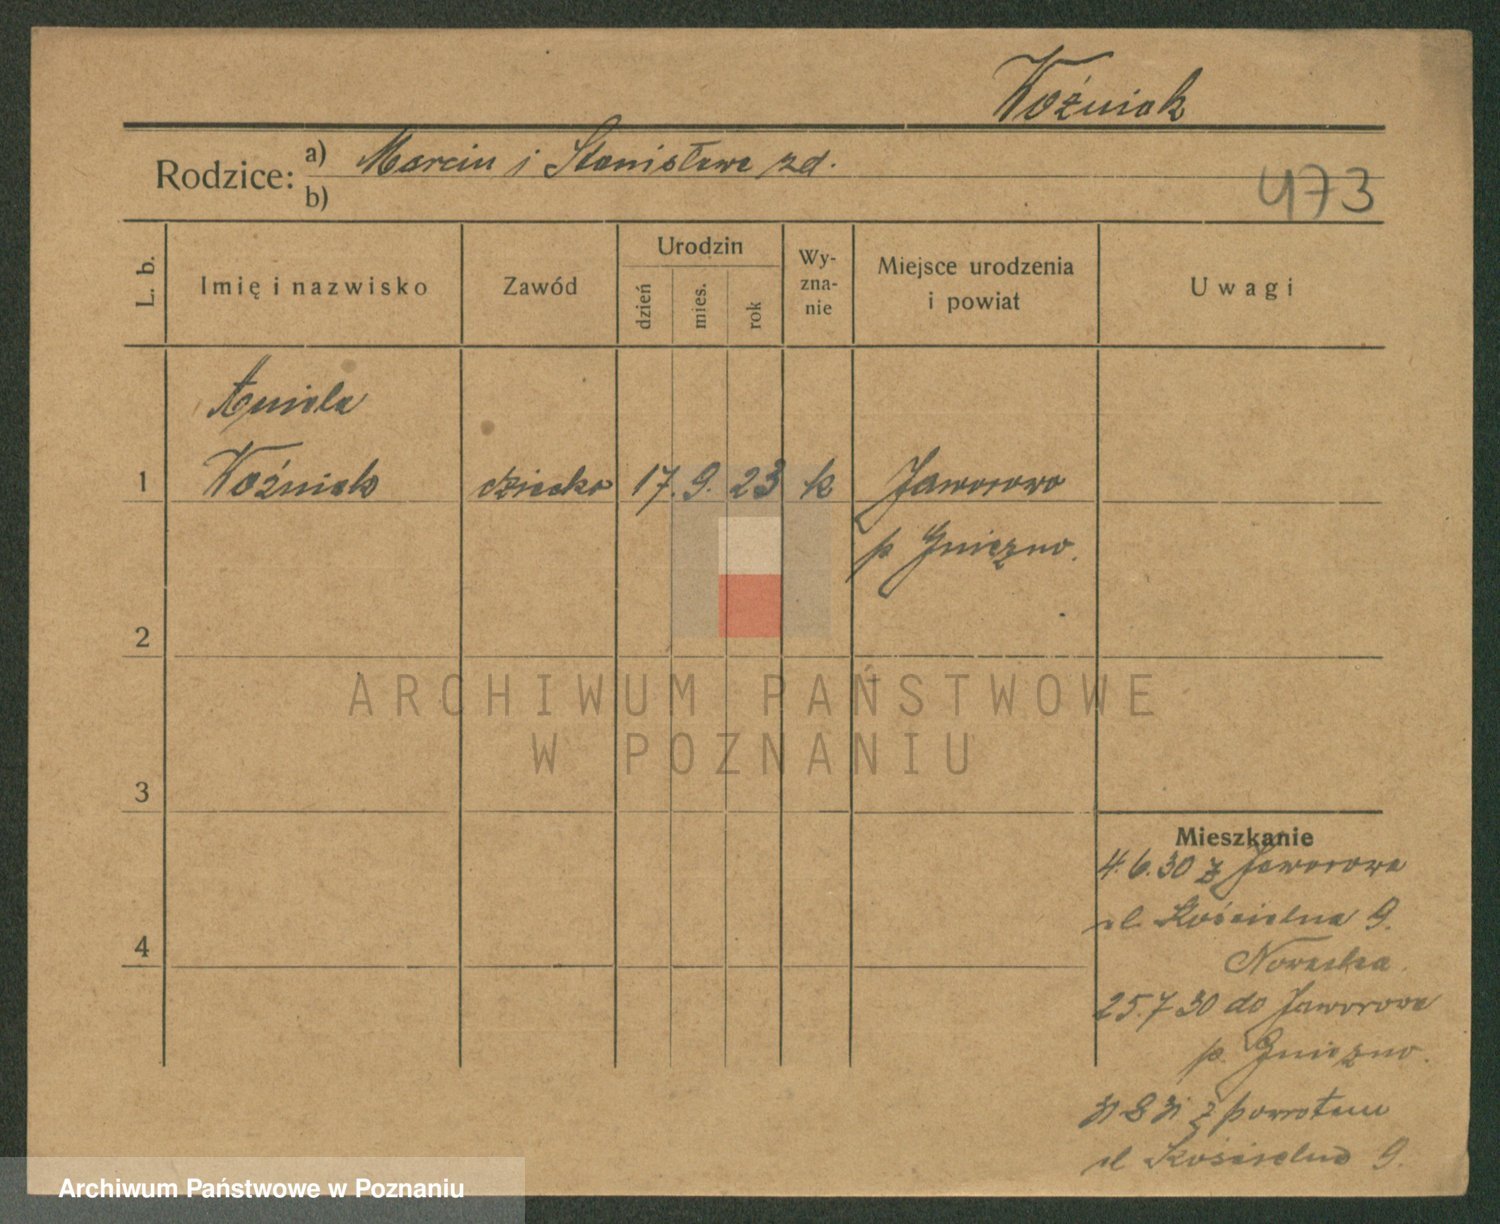 Woźniak
Rodzice: a) Marcin i Stanisława zd.
b)
473
L. b.
Imię i nazwisko
Zawód
Urodzin
dzień
mies.
rok
Wy-
zna-
nie
Miejsce urodzenia
i powiat
Uwagi
Aniela
1 Woźniak dziecko 17. 9. 23 k Jaworowo
p Gniezno.
2
ARCHIWUM PAŃSTWOWE
W POZNANIU
3
Mieszkanie
4.6.30 z Jaworowa
ul. Kościelna 9.
Nowacka.
4
25.7 30 do Jaworowa
p. Gniezno.
31 8 31 z powrotem
ul Kościelna 9.
Archiwum Państwowe w Poznaniu